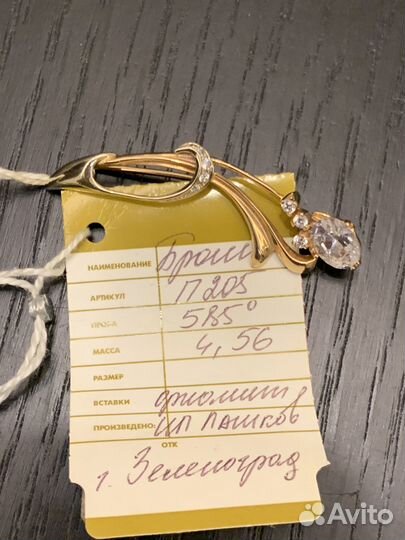 НАИМЕНОВАНИЕ Брошь
АРТИКУЛ П 205
ПРОБА 585°
МАССА 4,56
РАЗМЕР
ВСТАВКИ фианит
ПРОИЗВЕДЕНО: ИП Пашков
ОТК
г. Зеленоград
Avito